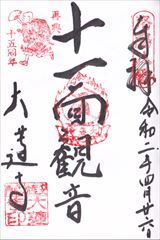 奉拝 令和二年四月廿六日
十一面観音
大蓮寺
再興
十五周年